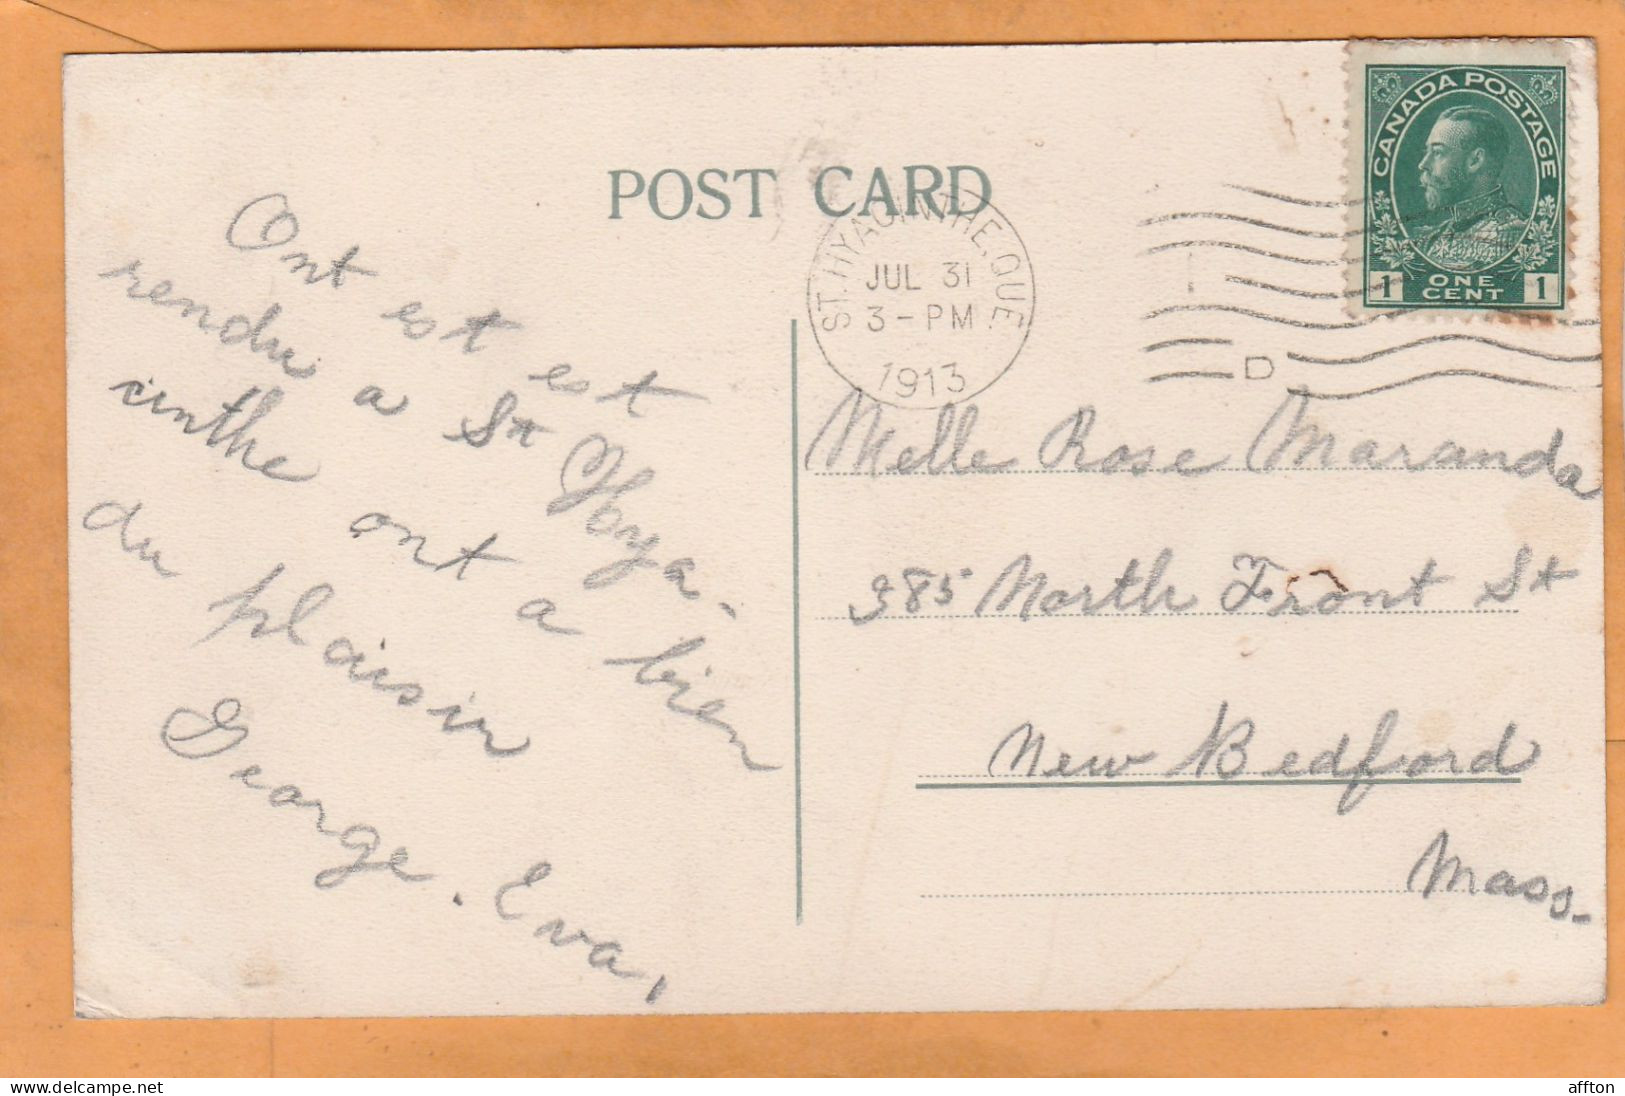 POST CARD
ST. HYACINTHE. QUE.
JUL 31
3 - PM
1913
D
CANADA POSTAGE
1 ONE CENT 1
Ont est est
rendu a St Hya-
cinthe ont a bien
du plaisir
George. Eva,
Melle Rose Maranda
385 North Front St
New Bedford
Mass.
affton